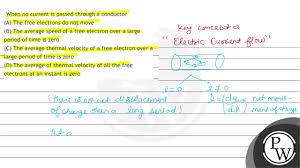 When no current is passed through a conductor
(A) The free electrons do not move
(B) The average speed of a free electron over a large
period of time is zero
(C) The average thermal velocity of a free electron over a
large period of time is zero
(D) The average of thermal velocity of all the free
electrons at an instant is zero
Key concept :-
"Electric Current flow"
i=0
i≠0
(there is not displacement
of charge over a long period)
net move-
ment of charge
PW